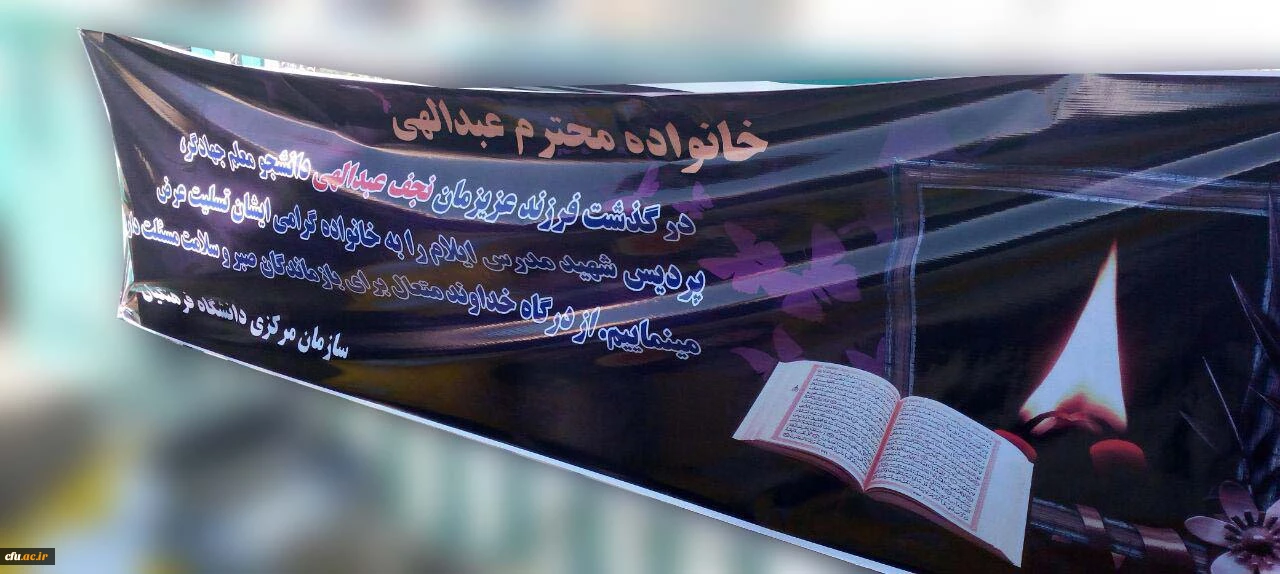 خانواده محترم عبدالهی
درگذشت فرزند عزیزمان نجف عبدالهی دانشجو معلم جهادگر،
پردیس شهید مدرس ایلام را به خانواده گرامی ایشان تسلیت عرض
مینماییم. از درگاه خداوند متعال برای بازماندگان صبر و سلامت مسئلت دار
سازمان مرکزی دانشگاه فرهنگیان
cfu.ac.ir